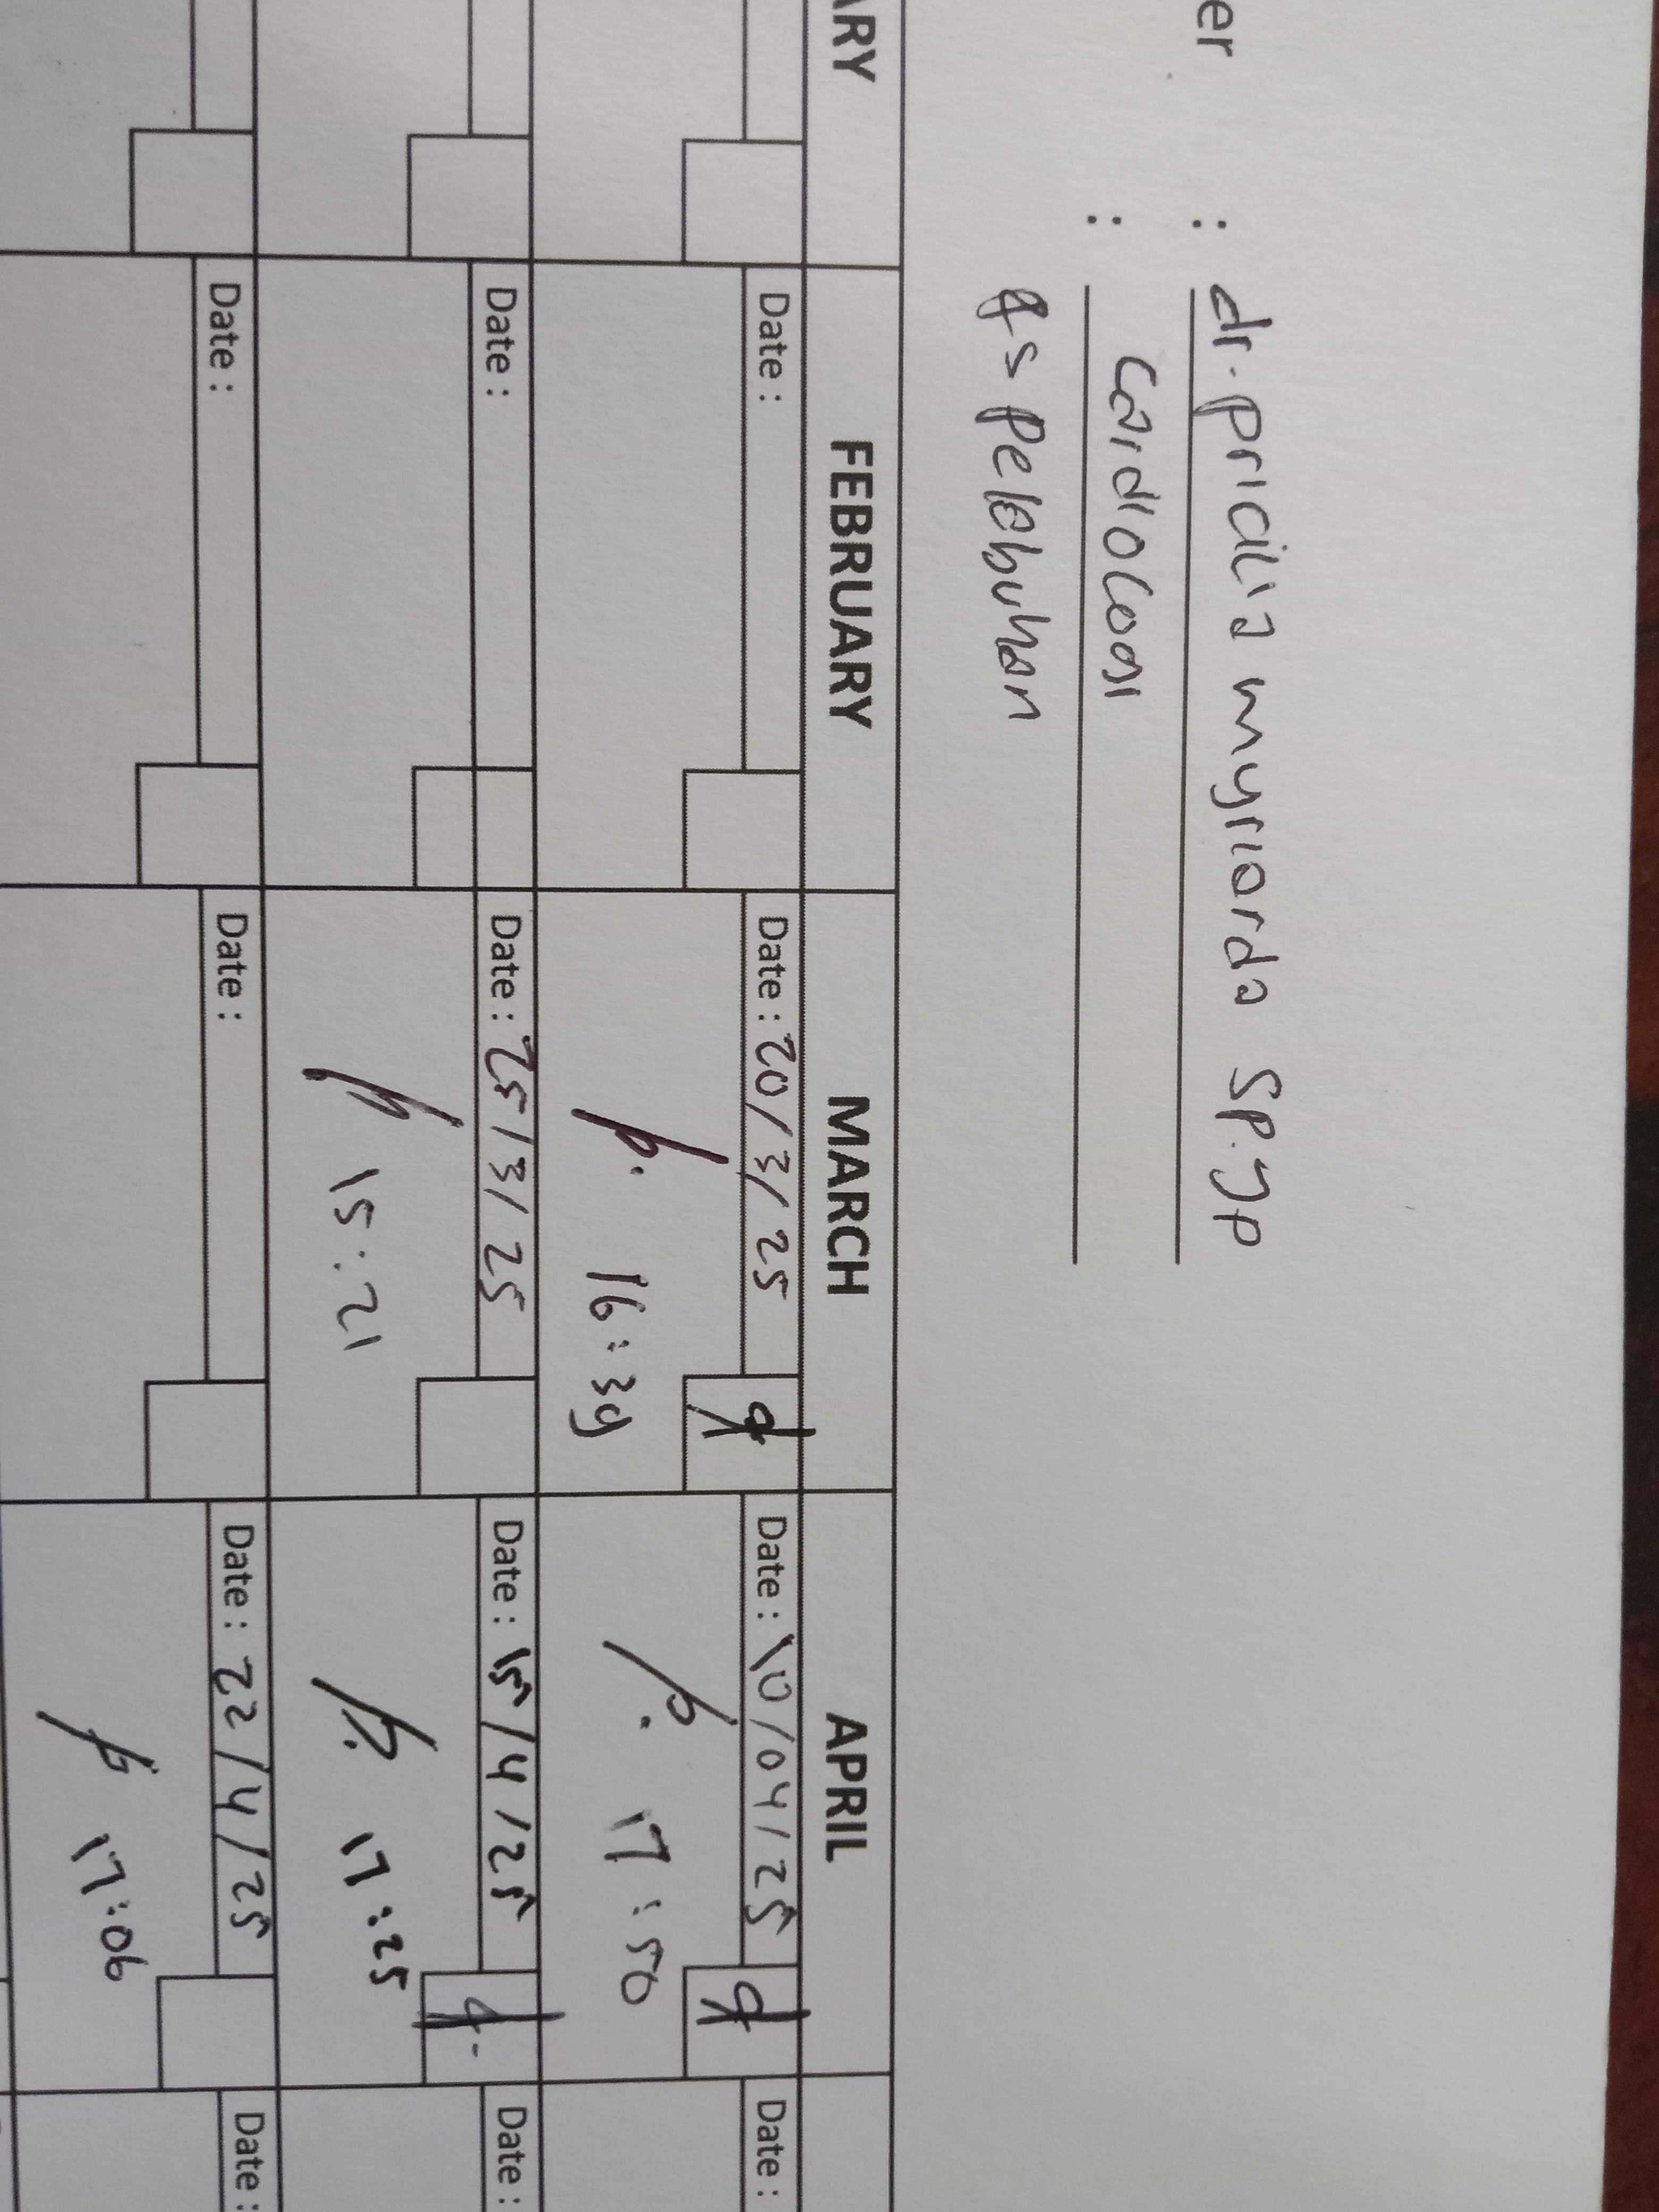 er : dr. pricilia myriarda sp.jp
: Cardiologi
RS Pelabuhan
ARY FEBRUARY MARCH APRIL
Date : Date : 20/3/25 Date : 10/04/25 Date :
16:39 17:50
Date : Date : 25/3/25 Date : 15/4/25 Date :
15:21 17:25
Date : Date : Date : 22/4/25 Date :
17:06